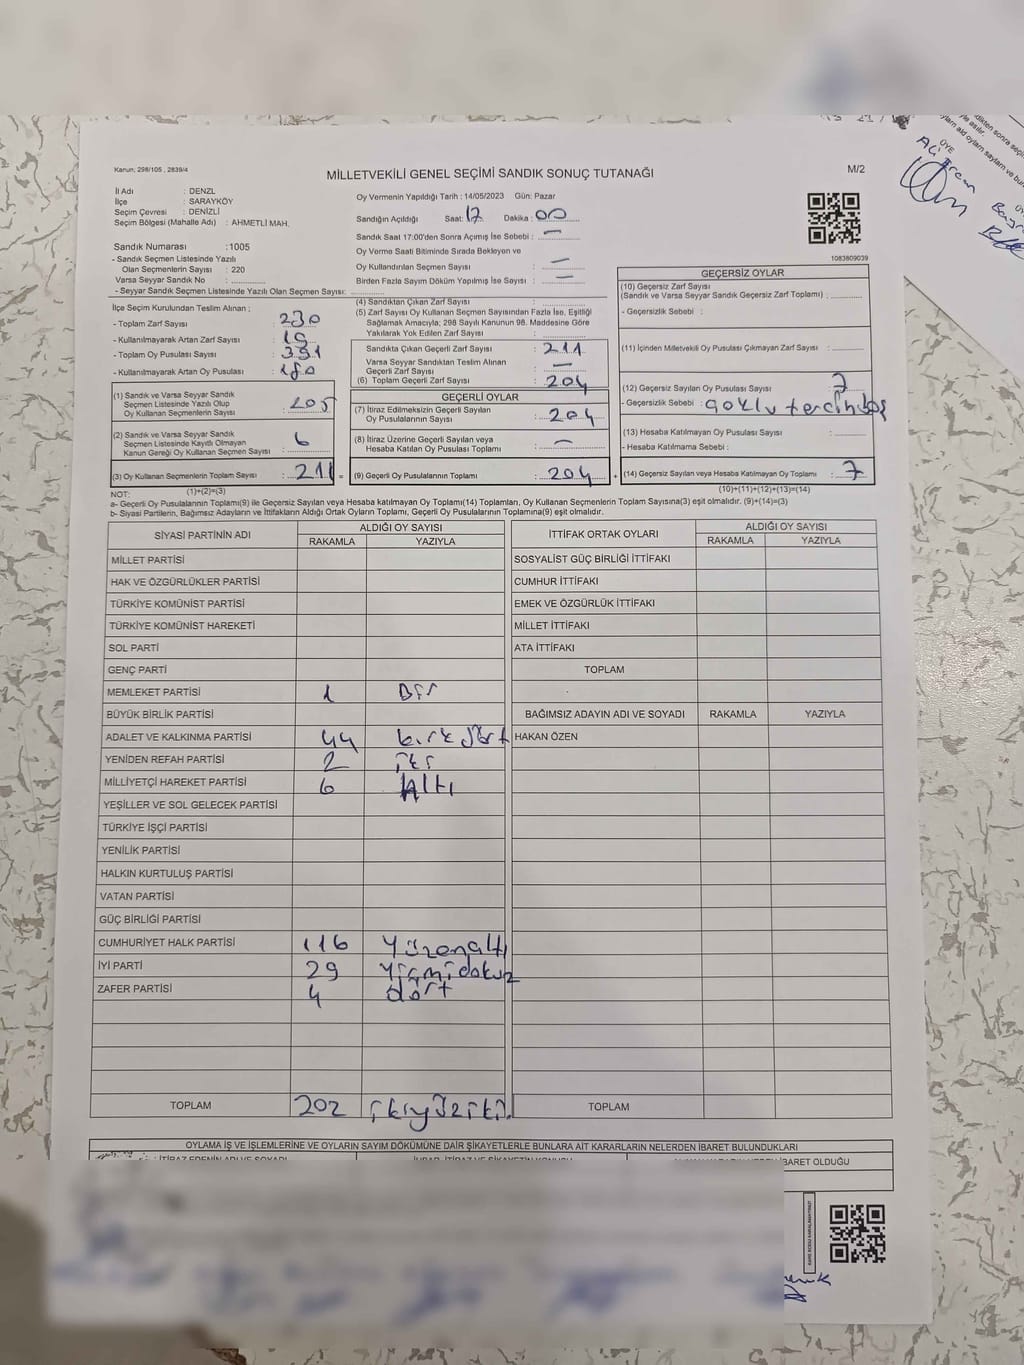 Karun; 298/105 , 2839/4
MİLLETVEKİLİ GENEL SEÇİMİ SANDIK SONUÇ TUTANAĞI
M/2
İl Adı : DENZL
İlçe : SARAYKÖY
Seçim Çevresi : DENİZLİ
Seçim Bölgesi (Mahalle Adı) : AHMETLİ MAH.
Sandık Numarası :1005
- Sandık Seçmen Listesinde Yazılı
Olan Seçmenlerin Sayısı : 220
Varsa Seyyar Sandık No :
- Seyyar Sandık Seçmen Listesinde Yazılı Olan Seçmen Sayısı:
Oy Vermenin Yapıldığı Tarih : 14/05/2023 Gün: Pazar
Sandığın Açıldığı Saat: 17 Dakika : 00
Sandık Saat 17:00'den Sonra Açımış İse Sebebi : —
Oy Verme Saati Bitiminde Sırada Bekleyen ve
Oy Kullandırılan Seçmen Sayısı : —
Birden Fazla Sayım Döküm Yapılmış İse Sayısı : —
1083809039
İlçe Seçim Kurulundan Teslim Alınan ;
- Toplam Zarf Sayısı : 230
- Kullanılmayarak Artan Zarf Sayısı : 19
- Toplam Oy Pusulası Sayısı : 391
- Kullanılmayarak Artan Oy Pusulası : 180
(1) Sandık ve Varsa Seyyar Sandık
Seçmen Listesinde Yazılı Olup
Oy Kullanan Seçmenlerin Sayısı : 205
(2) Sandık ve Varsa Seyyar Sandık
Seçmen Listesinde Kayıtlı Olmayan
Kanun Gereği Oy Kullanan Seçmen Sayısı : 6
(3) Oy Kullanan Seçmenlerin Toplam Sayısı : 211 =
(4) Sandıktan Çıkan Zarf Sayısı :
(5) Zarf Sayısı Oy Kullanan Seçmen Sayısından Fazla İse, Eşitliği
Sağlamak Amacıyla; 298 Sayılı Kanunun 98. Maddesine Göre
Yakılarak Yok Edilen Zarf Sayısı :
Sandıkta Çıkan Geçerli Zarf Sayısı : 211
Varsa Seyyar Sandıktan Teslim Alınan
Geçerli Zarf Sayısı : —
(6) Toplam Geçerli Zarf Sayısı : 204
GEÇERLİ OYLAR
(7) İtiraz Edilmeksizin Geçerli Sayılan
Oy Pusulalarının Sayısı : 204
(8) İtiraz Üzerine Geçerli Sayılan veya
Hesaba Katılan Oy Pusulası Toplamı : —
(9) Geçerli Oy Pusulalarının Toplamı : 204 +
GEÇERSİZ OYLAR
(10) Geçersiz Zarf Sayısı
(Sandık ve Varsa Seyyar Sandık Geçersiz Zarf Toplamı) :
- Geçersizlik Sebebi :
(11) İçinden Milletvekili Oy Pusulası Çıkmayan Zarf Sayısı :
(12) Geçersiz Sayılan Oy Pusulası Sayısı : 7
- Geçersizlik Sebebi :
(13) Hesaba Katılmayan Oy Pusulası Sayısı :
- Hesaba Katılmama Sebebi :
(14) Geçersiz Sayılan veya Hesaba Katılmayan Oy Toplamı : 7
NOT: (1)+(2)=(3)
(10)+(11)+(12)+(13)=(14)
a- Geçerli Oy Pusulalarının Toplamı(9) ile Geçersiz Sayılan veya Hesaba katılmayan Oy Toplamı(14) Toplamları, Oy Kullanan Seçmenlerin Toplam Sayısına(3) eşit olmalıdır. (9)+(14)=(3)
b- Siyasi Partilerin, Bağımsız Adayların ve İttifakların Aldığı Ortak Oyların Toplamı, Geçerli Oy Pusulalarının Toplamına(9) eşit olmalıdır.
SİYASİ PARTİNİN ADI ALDIĞI OY SAYISI
RAKAMLA YAZIYLA
MİLLET PARTİSİ
HAK VE ÖZGÜRLÜKLER PARTİSİ
TÜRKİYE KOMÜNİST PARTİSİ
TÜRKİYE KOMÜNİST HAREKETİ
SOL PARTİ
GENÇ PARTİ
MEMLEKET PARTİSİ 1 Bir
BÜYÜK BİRLİK PARTİSİ
ADALET VE KALKINMA PARTİSİ 44 kırk dört
YENİDEN REFAH PARTİSİ 2 iki
MİLLİYETÇİ HAREKET PARTİSİ 6 Altı
YEŞİLLER VE SOL GELECEK PARTİSİ
TÜRKİYE İŞÇİ PARTİSİ
YENİLİK PARTİSİ
HALKIN KURTULUŞ PARTİSİ
VATAN PARTİSİ
GÜÇ BİRLİĞİ PARTİSİ
CUMHURİYET HALK PARTİSİ 116 Yüzonaltı
İYİ PARTİ 29 Yirmidokuz
ZAFER PARTİSİ 4 dört
TOPLAM 202 ikiyüziki
İTTİFAK ORTAK OYLARI ALDIĞI OY SAYISI
RAKAMLA YAZIYLA
SOSYALİST GÜÇ BİRLİĞİ İTTİFAKI
CUMHUR İTTİFAKI
EMEK VE ÖZGÜRLÜK İTTİFAKI
MİLLET İTTİFAKI
ATA İTTİFAKI
TOPLAM
BAĞIMSIZ ADAYIN ADI VE SOYADI RAKAMLA YAZIYLA
HAKAN ÖZEN
TOPLAM
OYLAMA İŞ VE İŞLEMLERİNE VE OYLARIN SAYIM DÖKÜMÜNE DAİR ŞİKAYETLERLE BUNLARA AİT KARARLARIN NELERDEN İBARET BULUNDUKLARI
İBARET OLDUĞU
ÜYE